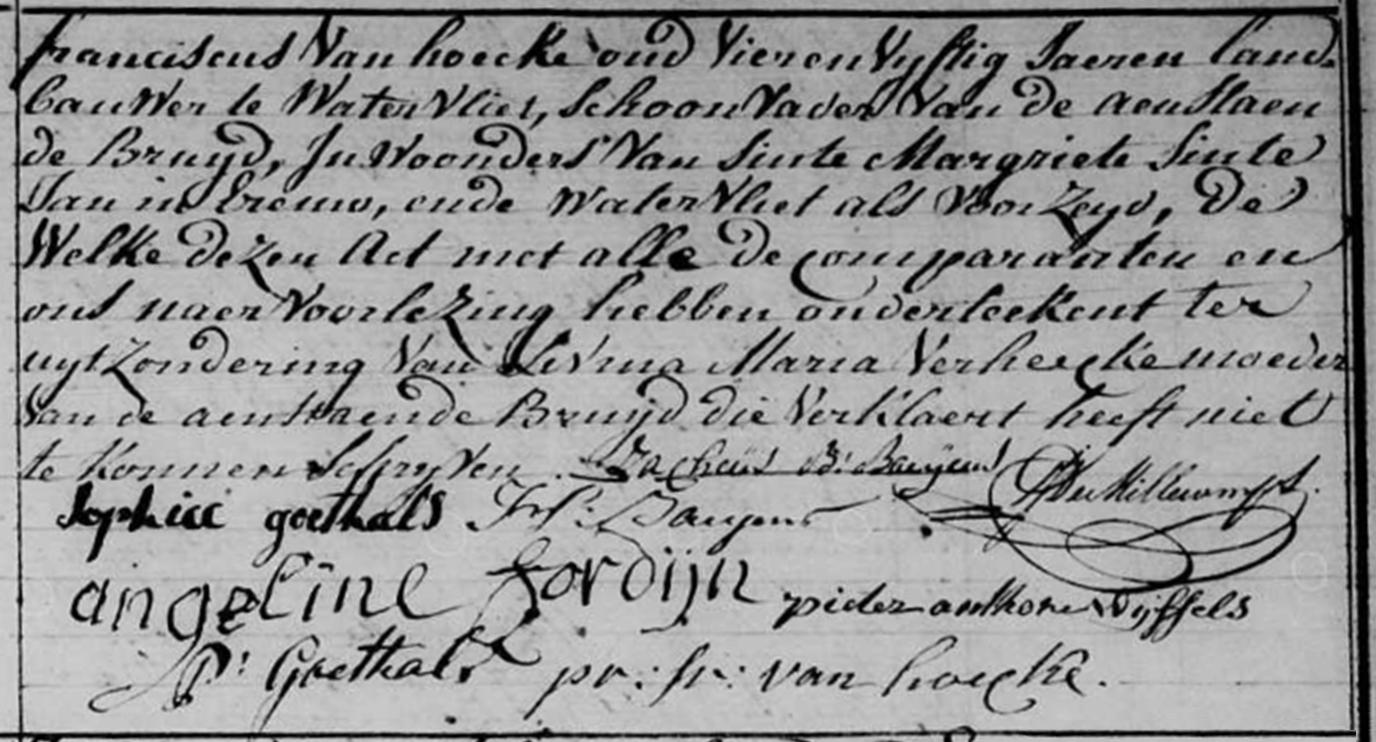 franciscus Van hoecke oud Vieren Vyftig Jaeren land-
bauWer te WaterVliet, SchoonVader Van de aenstaen
de Bruyd, InWoonders Van Sinte Margriete Sinte
Jan in Eremo, ende WaterVliet als Voorzeyd, De
Welke dezen Act met alle de comparanten en
ons naer Voorlezing hebben onderteekent ter
uytzondering Van LiVina Maria Verheecke moeder
Van de aenstaende Bruyd die Verklaert heeft niet
te konnen schryVen. Zacheus B: Baujens
Sophiee goethals Bauyens
angeline fordijn pieter anthone Wijffels
P: Goethals pr: fr: van hoecke.